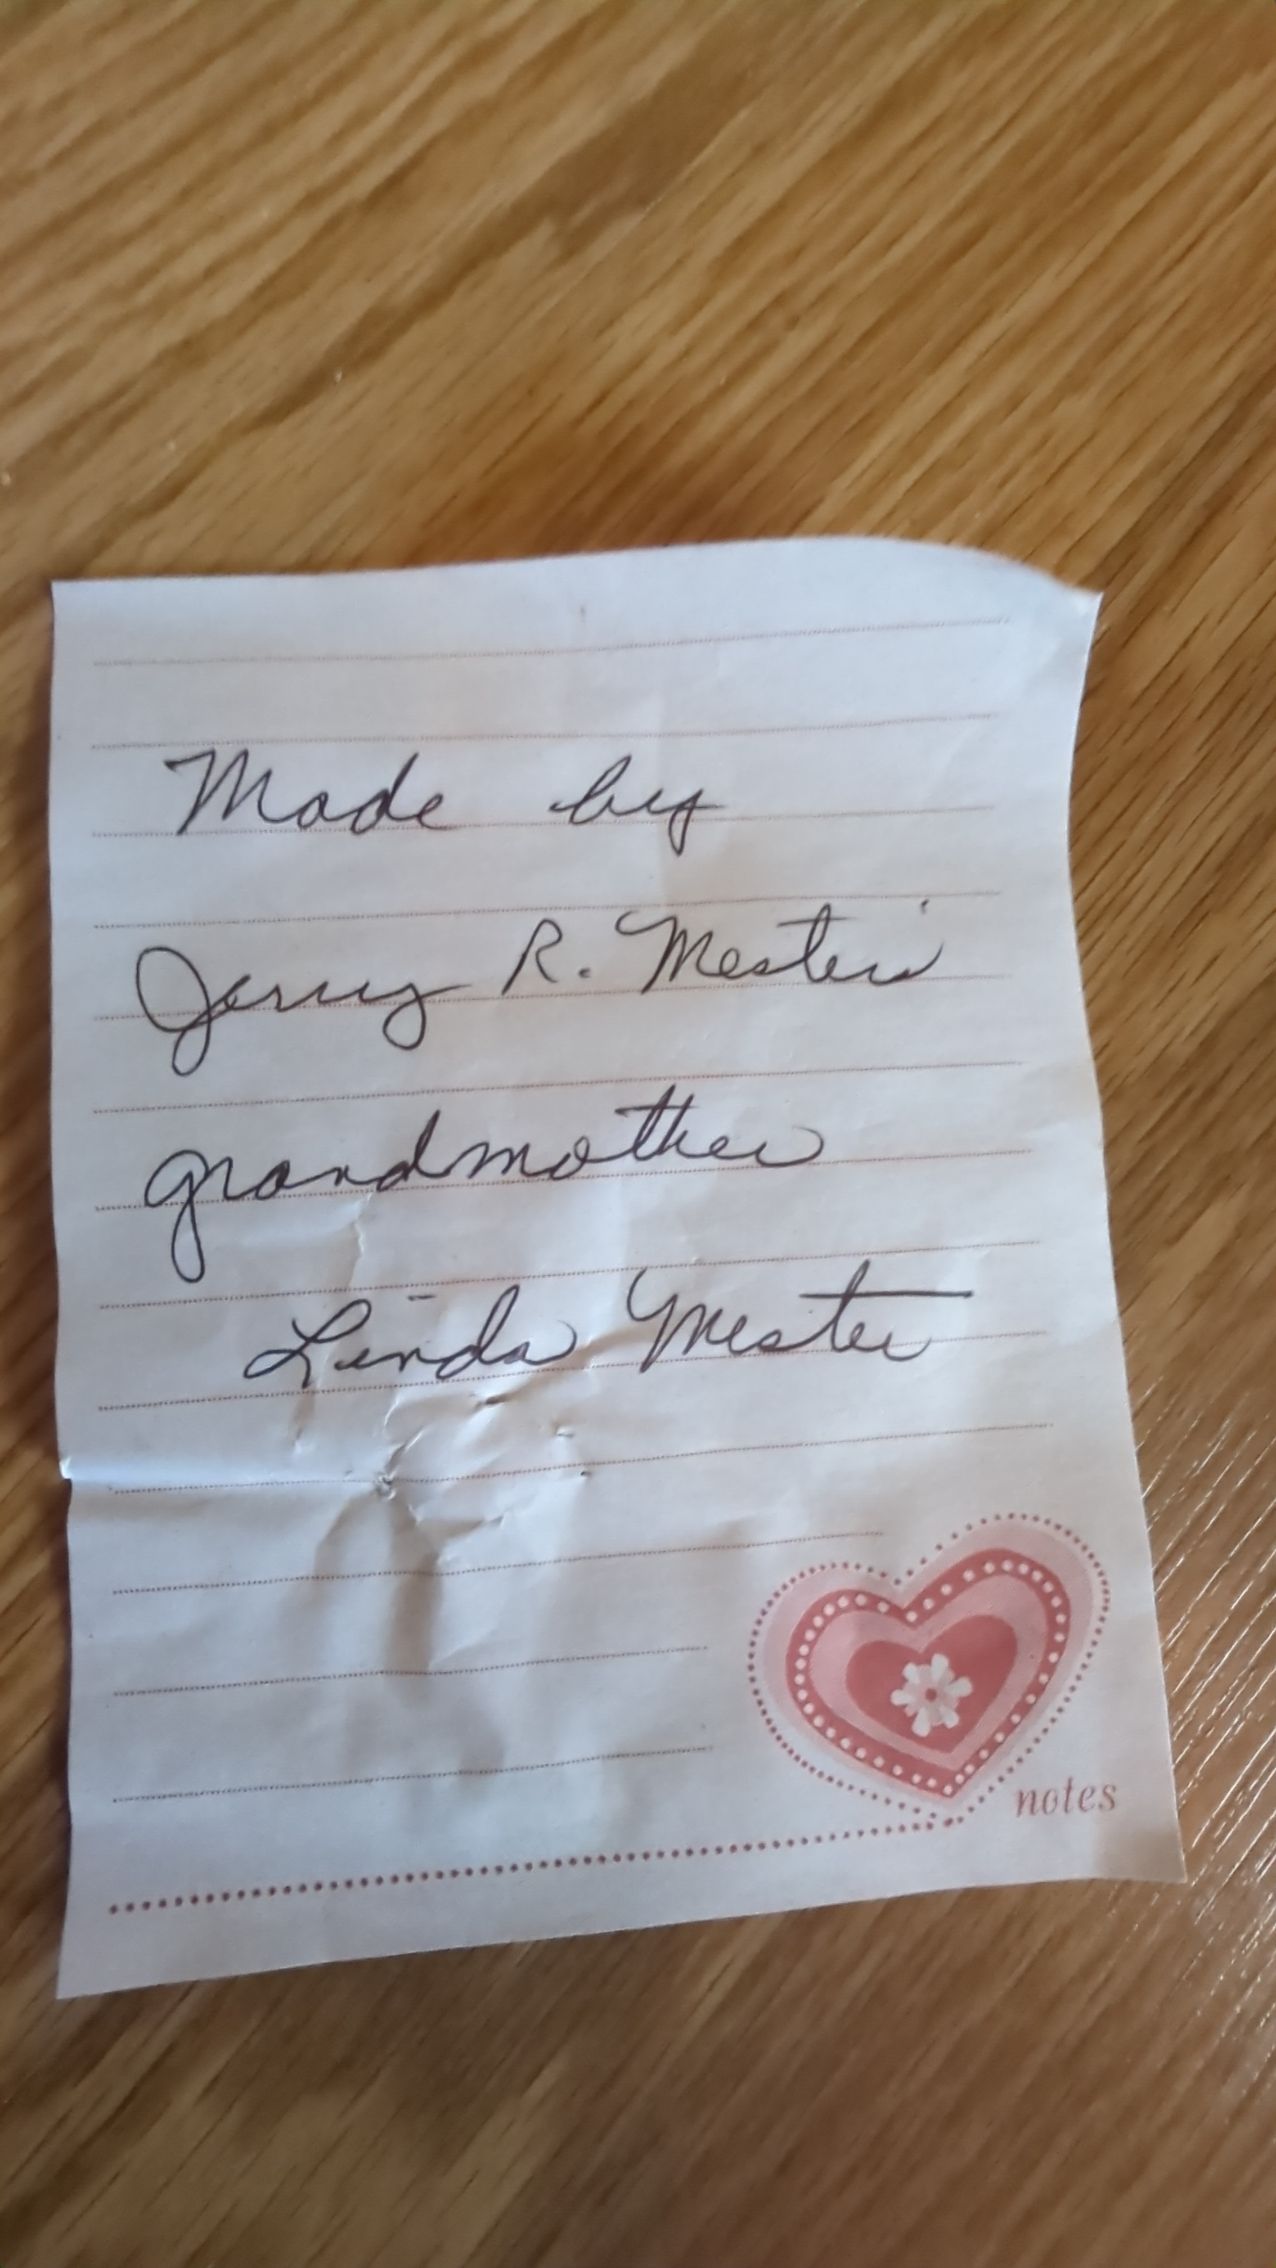 Made by
Jerry R. Mester's
grandmother
Linda Mester
notes